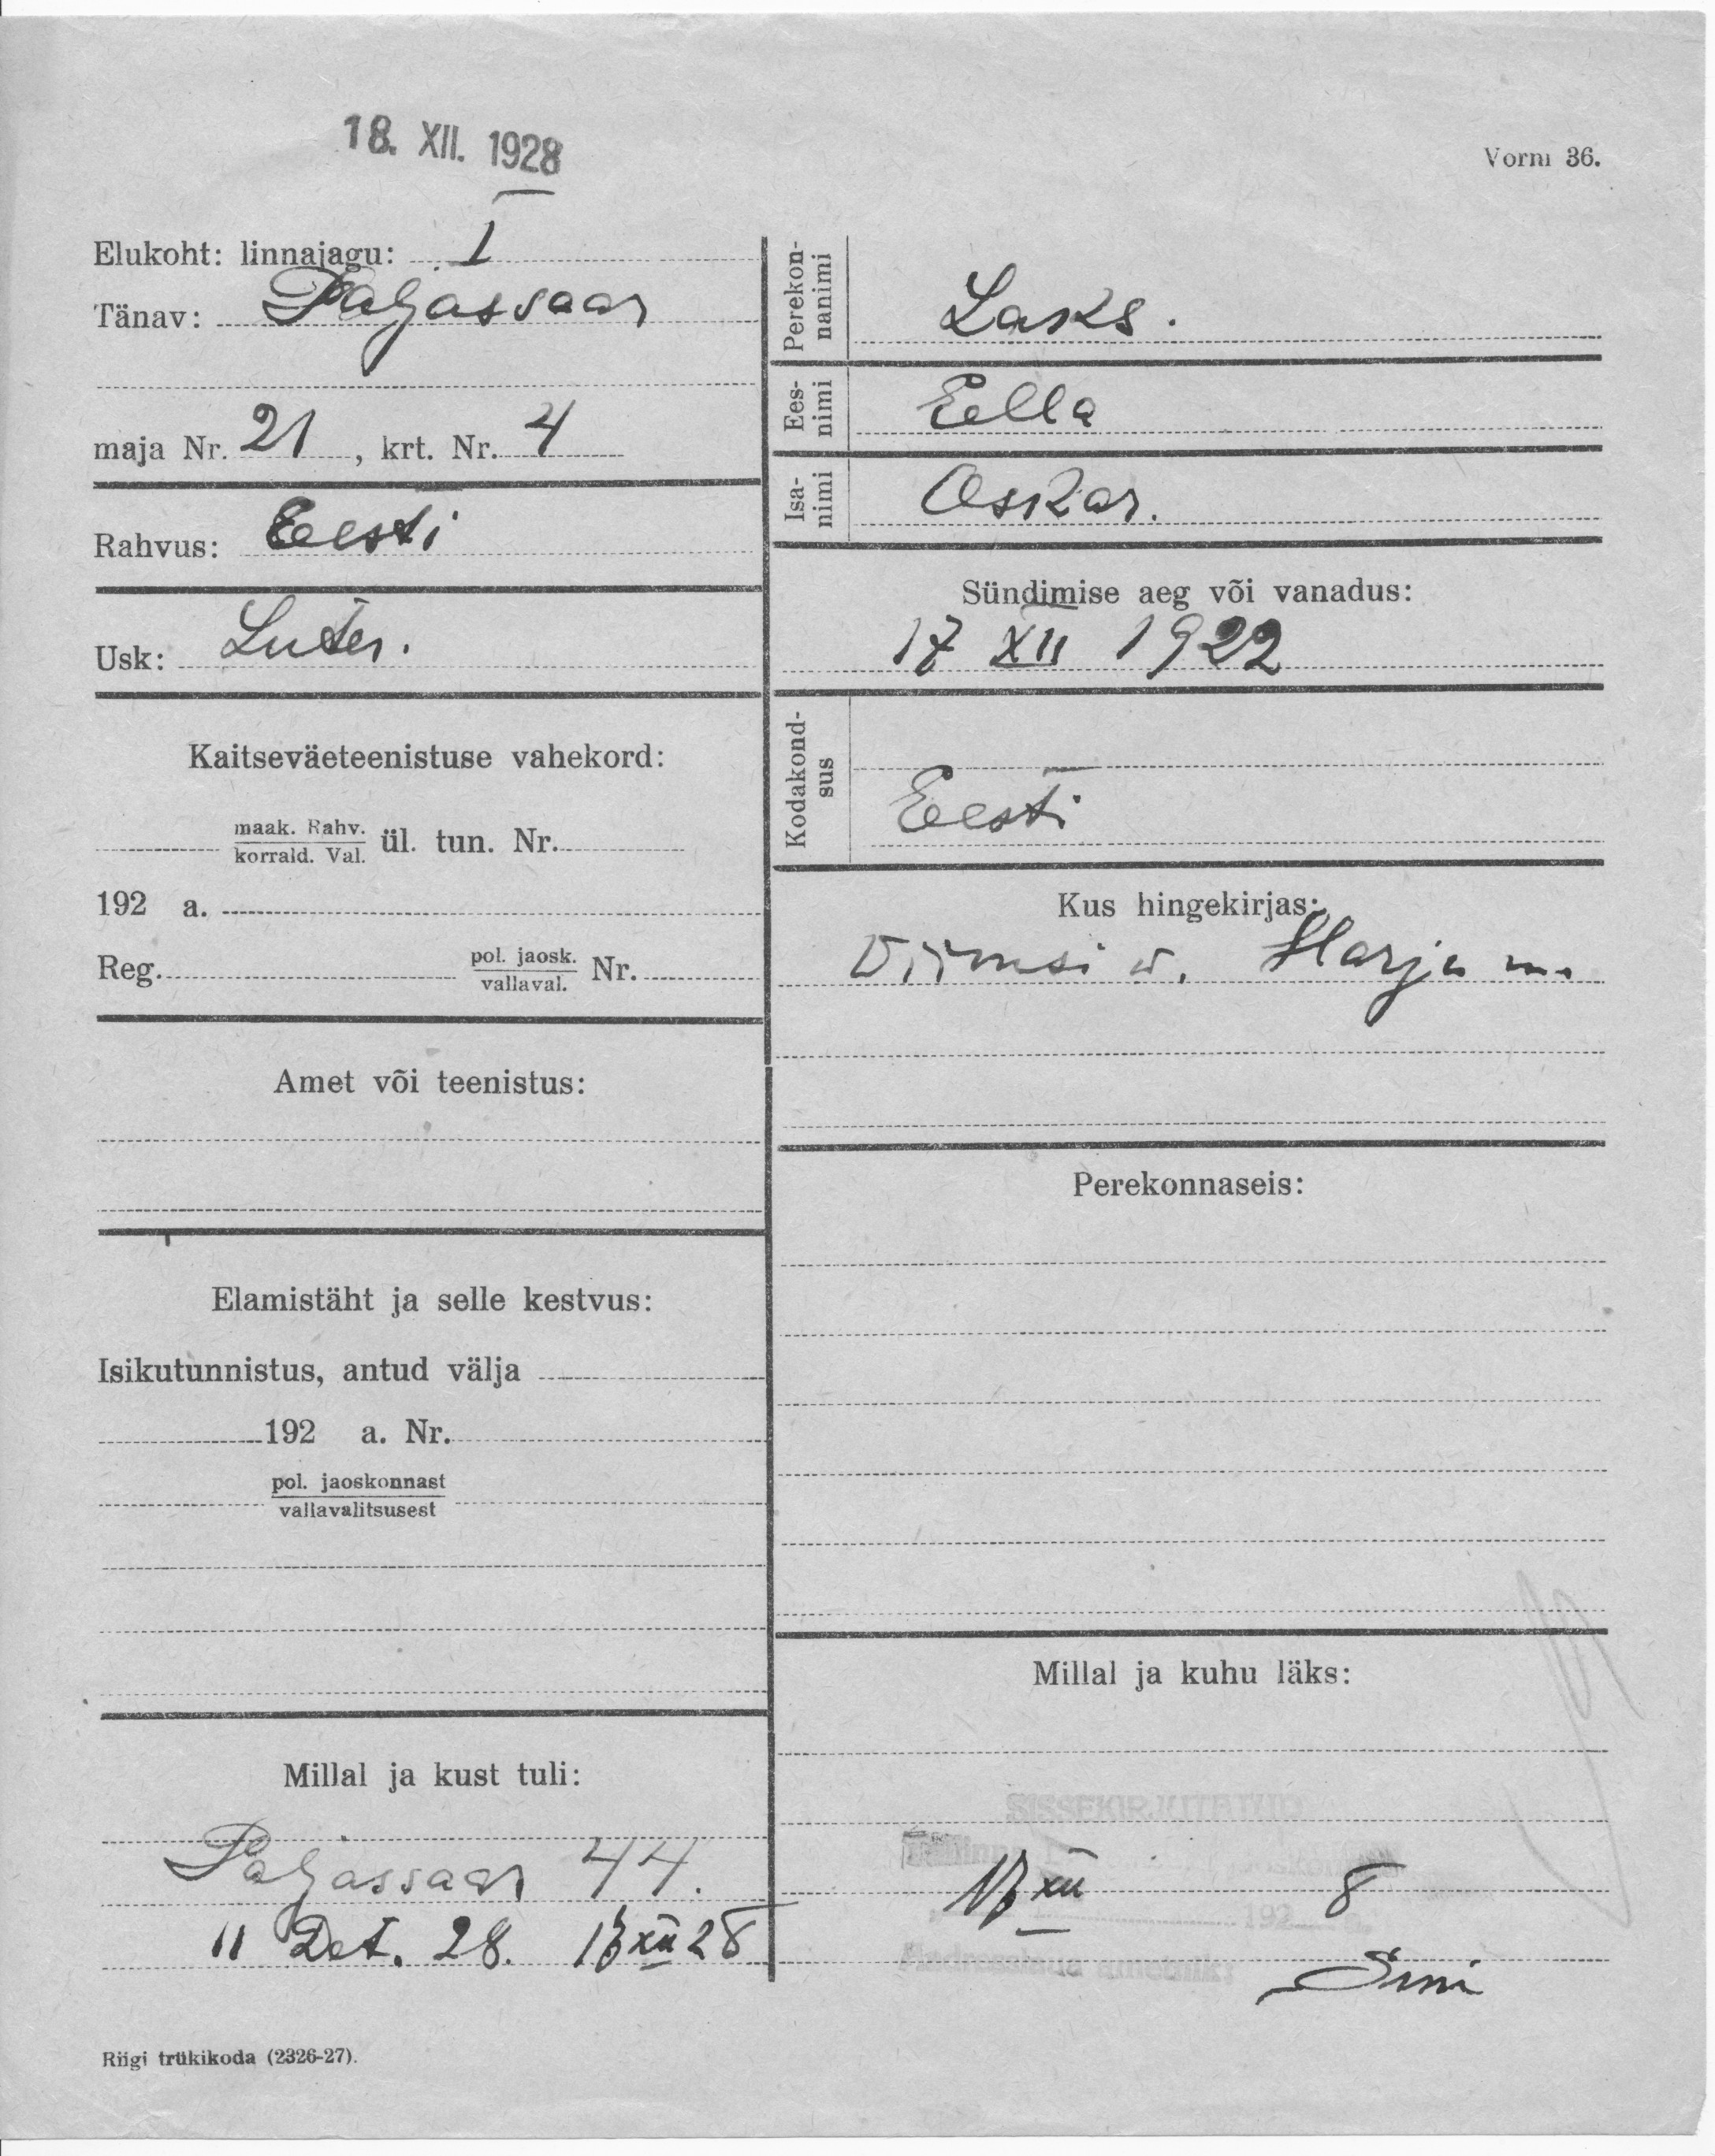 18. XII. 1928
Vorm 36.
Elukoht: linnajagu: I
Tänav: Paljassaar
maja Nr. 21, krt. Nr. 4
Rahvus: Eesti
Usk: Luter.
Kaitseväeteenistuse vahekord:
maak. Rahv.
korrald. Val. ül. tun. Nr.
192 a.
Reg. pol. jaosk.
vallaval. Nr.
Amet või teenistus:
Elamistäht ja selle kestvus:
Isikutunnistus, antud välja
192 a. Nr.
pol. jaoskonnast
vallavalitsusest
Millal ja kust tuli:
Paljassaar 44.
11 Det. 28. XII 28
Riigi trükikoda (2326-27).
Perekon-
nanimi
Laks.
Ees-
nimi
Eella
Isa-
nimi
Oskar.
Sündimise aeg või vanadus:
17 XII 1922
Kodakond-
sus
Eesti
Kus hingekirjas:
Viimsi v. Harju m.
Perekonnaseis:
Millal ja kuhu läks:
SISSEKIRJUTATUD
Tallinna
XII 192 8
Aadresslaua ametnik: